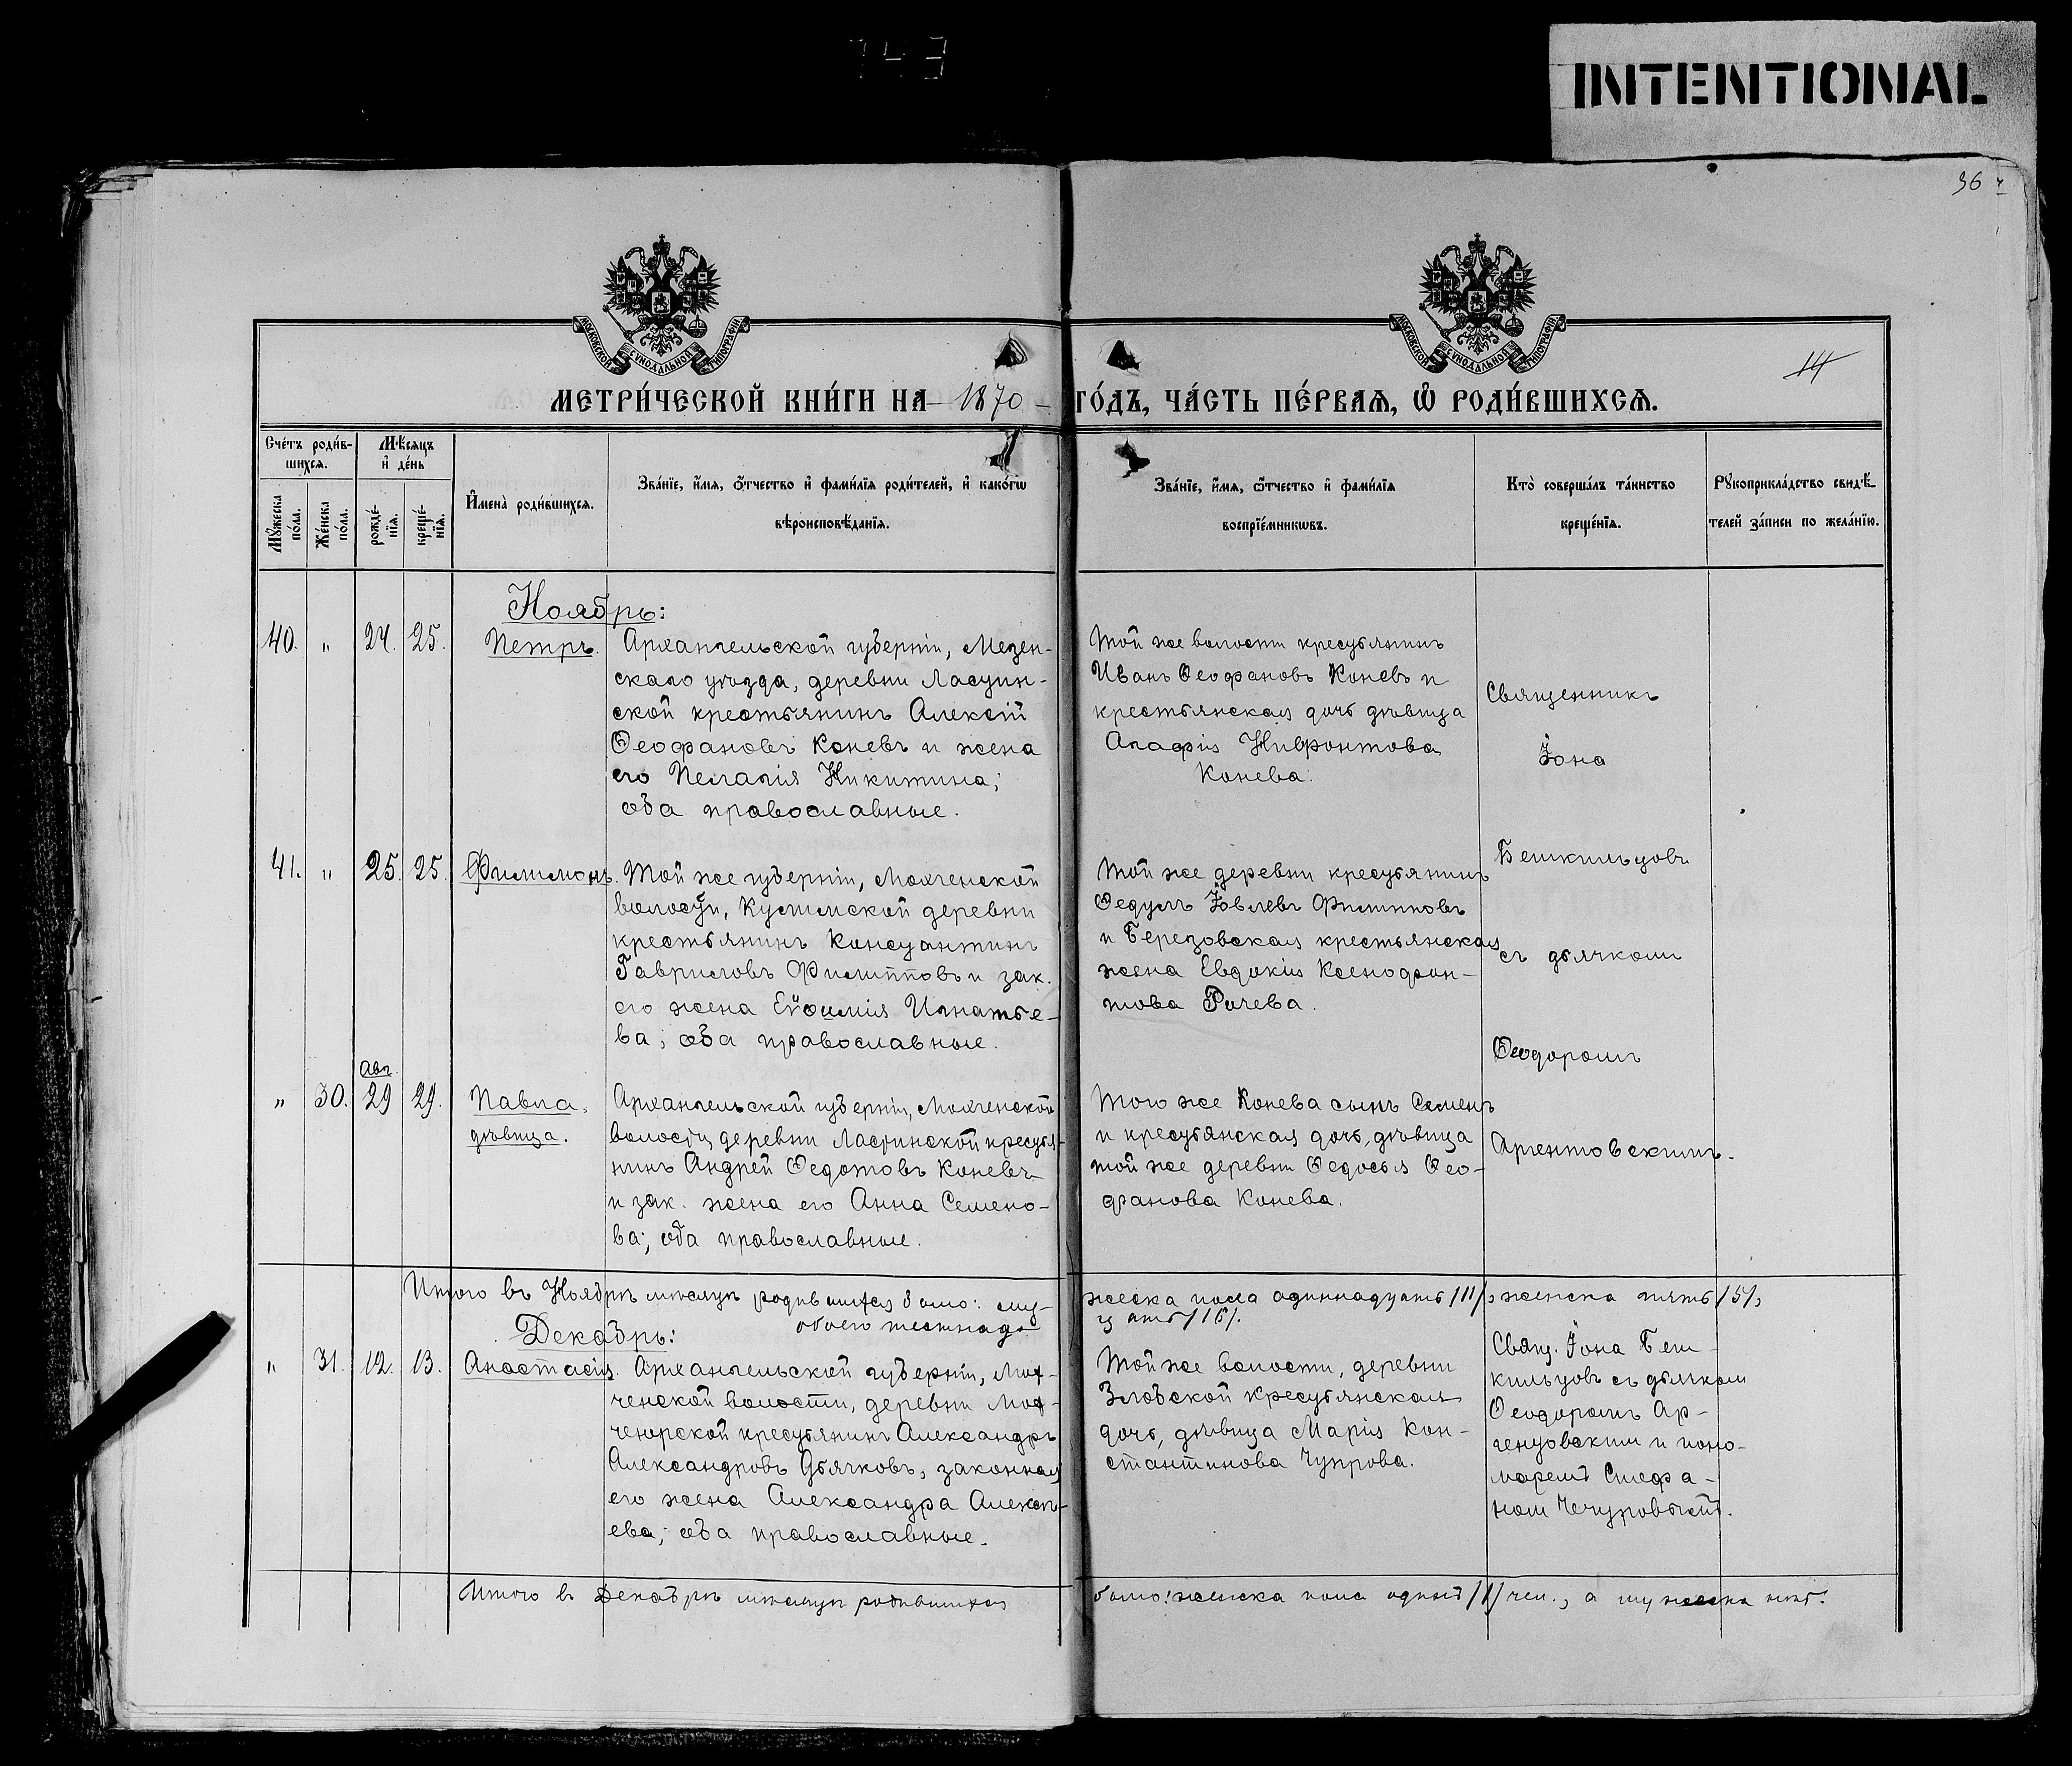 INTENTIONAL
МОСКОВСКОЙ СѴНОДАЛЬНОЙ ТИПОГРАФІИ
МОСКОВСКОЙ СѴНОДАЛЬНОЙ ТИПОГРАФІИ
14
МЕТРИ́ЧЕСКОЙ КНИ́ГИ НА 1870 ГО́ДЪ, ЧА́СТЬ ПЕ́РВАѦ, Ѡ РОДИ́ВШИХСѦ.
Сче́тъ роди́в-
шихсѧ.
Мꙋ́жеска по́ла.
Же́нска по́ла.
Мѣ́сѧцъ
и҆ де́нь
рожде́-
нїѧ.
креще́-
нїѧ.
И҆мена̀ роди́вшихсѧ.
Зва́нїе, и҆́мѧ, ѻ҆́тчество и҆ фами́лїѧ роди́телей, и҆ како́гѡ
вѣроисповѣ́данїѧ.
Зва́нїе, и҆́мѧ, ѻ҆́тчество и҆ фами́лїѧ
воспрїе́мникѡвъ.
Кто̀ соверша́лъ та́инство
креще́нїѧ.
Рꙋкоприкла́дство свидѣ́-
телей за́писи по жела́нїю.
Ноябрь:
40. " 24. 25. Петръ.
Архангельской губерніи, Мезен-
скаго уѣзда, деревни Ласуин-
ской крестьянинъ Алексій
Ѳеофановъ Коневъ и жена
его Пелагія Никитина;
оба православные.
Той же волости крестьянинъ
Иванъ Ѳеофановъ Коневъ и
крестьянская дочь дѣвица
Агафія Нифонтова
Конева.
Священникъ
Іона
Бешкильцовъ
съ дьячкомъ
Ѳеодоромъ
Аргентовскимъ.
41. " 25. 25. Филимонъ.
Той же губерніи, Мохченской
волости, Кулимской деревни
крестьянинъ Константинъ
Гавриловъ Филипповъ и зак.
его жена Евѳимія Игнатье-
ва; оба православные.
Той же деревни крестьянинъ
Ѳедулъ Іовлевъ Филиповъ
и Березовская крестьянская
жена Евдокія Ксенофон-
това Рочева.
Авг.
" 30. 29 29. Павла.
дѣвица.
Архангельской губерніи, Мохченской
волости, деревни Ластинской крестья-
нинъ Андрей Ѳедотовъ Коневъ
и зак. жена его Анна Семено-
ва; оба православные.
Того же Конева сынъ Семенъ
и крестьянская дочь, дѣвица
той же деревни Ѳедосья Ѳео-
фанова Конева.
Итого въ Ноябрѣ мѣсяцѣ родившихся было: муж-
жеска пола одиннадцать /11/, женска пять /5/,
обоего шестнад-
цать /16/.
Декабрь:
" 31. 12. 13. Анастасія.
Архангельской губерніи, Мох-
ченской волости, деревни Мох-
чегорской крестьянинъ Александръ
Александровъ Дьячковъ, законная
его жена Александра Алексѣ-
ева; оба православные.
Той же волости, деревни
Злобской крестьянская
дочь, дѣвица Марія Кон-
стантинова Чупрова.
Свящ. Іона Беш-
кильцовъ съ дьячком
Ѳеодоромъ Ар-
гентовским и поно-
маремъ Стефа-
ном
Итого въ Декабрѣ мѣсяцѣ родившихся
было: женска пола одинъ /1/ чел., а мужеска нѣт.